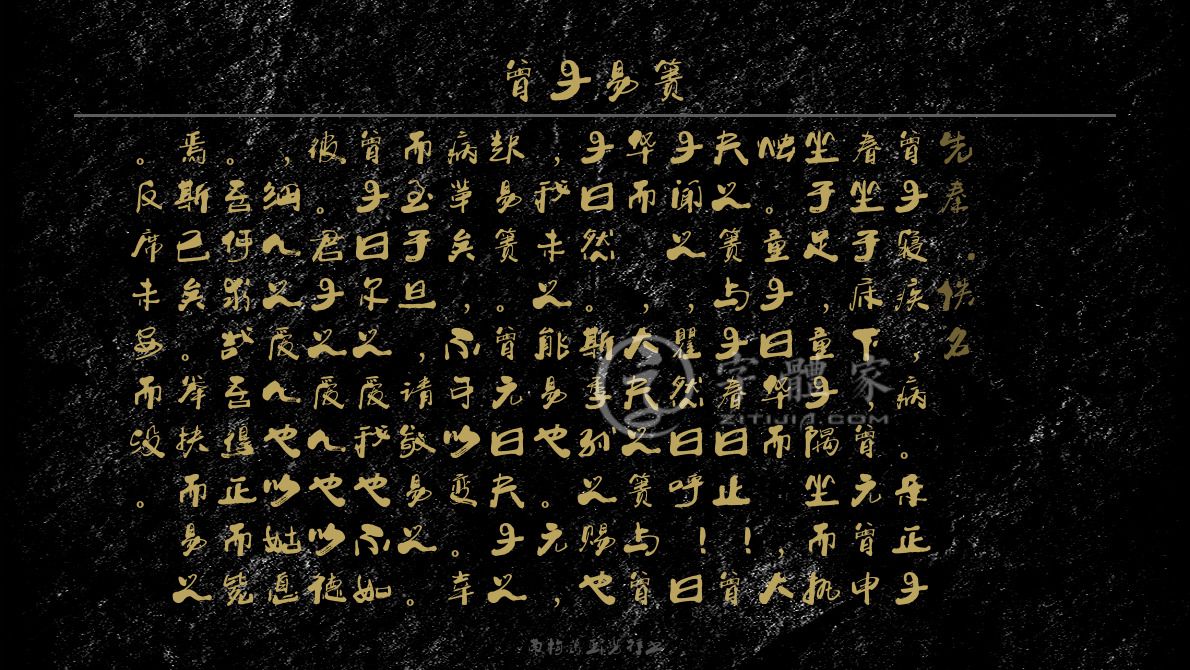 曾子易箦
先秦·佚名
曾子寝疾，病。乐正子
春坐于床下，曾元曾申
坐于足，童子隅坐而执
烛。童子曰华而，大
夫之箦与子春曰止！曾
子闻之，瞿然曰呼！曰
华而，大夫之箦与曾
子曰然。斯季孙之赐也
，我未之能易也。元，
起易箦。曾元曰夫子之
病革矣，不可以变，幸
而至于旦，请敬易之。
曾子曰尔之爱我也不如
彼。君子之爱人也以德
，细人之爱人也以姑息
。吾何求哉吾得正而毙
焉斯已矣。举扶而易之
。反席未安而没。
字體家
ZITIJIA.COM